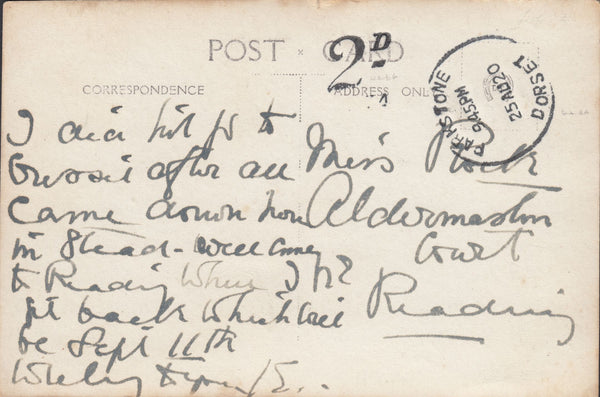 POST CARD
2D
CORRESPONDENCE
ADDRESS ONLY
PARKSTONE
9.45PM
25 AU 20
DORSET
I did not go to
after all
came down
in Stead - will
to Reading when I
get back which will
be Sept 11th
Miss
Aldermaston
Court
Reading